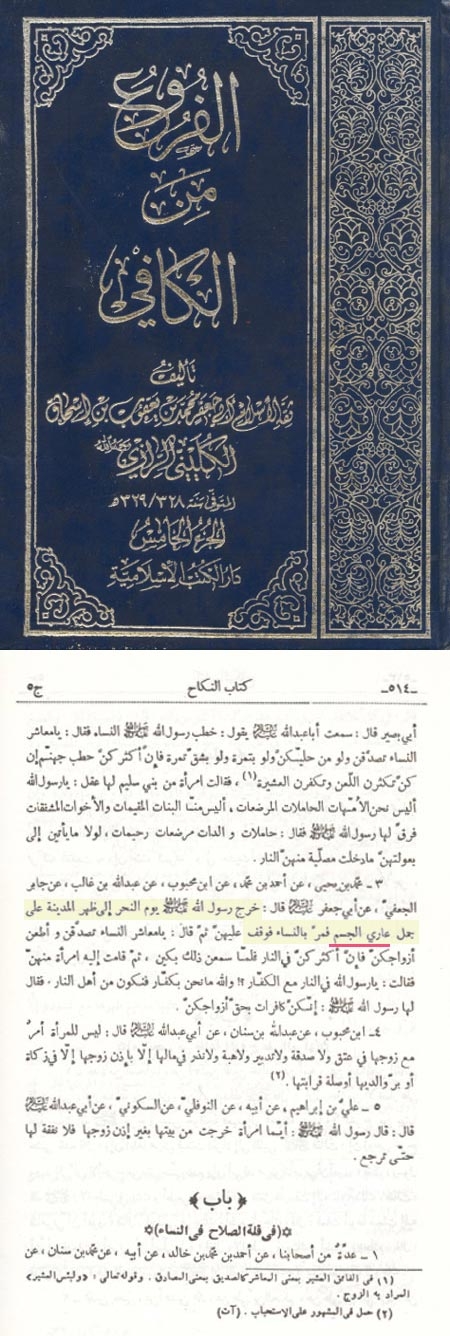 الفروع
من
الكافي
تأليف
ثقة الإسلام أبي جعفر محمد بن يعقوب بن إسحاق
الكليني الرازي رحمه الله
المتوفى سنة ٣٢٨/٣٢٩ هـ
الجزء الخامس
دار الكتب الإسلامية
-٥١٤- كتاب النكاح ج٥
أبي بصير قال : سمعت أباعبدالله ﷺ يقول : خطب رسول الله ﷺ النساء فقال : يامعاشر
النساء تصدّقن ولو من حليّكنّ ولو بتمرة ولو بشقّ تمرة فإنّ أكثر كنّ حطب جهنّم إن
كنّ تكثرن اللّعن وتكفرن العشيرة (١) ، فقالت امرأة من بني سليم لها عقل : يارسول الله
أليس نحن الأُمّهات الحاملات المرضعات ، أليس منّا البنات المقيمات والأخوات المشفقات
فرقّ لها رسول الله ﷺ فقال : حاملات والدات مرضعات رحيمات ، لولا مايأتين إلى
بعولتهنّ مادخلت مصلّية منهنّ النار .
٣ - محمّدبن يحيى ، عن أحمدبن محمّد ، عن ابن محبوب ، عن عبدالله بن غالب ، عن جابر
الجعفيّ ، عن أبي جعفر ﷺ قال : خرج رسول الله ﷺ يوم النحر إلى ظهر المدينة على
جمل عاري الجسم فمرّ بالنساء فوقف عليهنّ ثمّ قال : يامعاشر النساء تصدّقن و أطعن
أزواجكنّ فإنّ أكثر كنّ في النار فلمّا سمعن ذلك بكين ، ثمّ قامت إليه امرأة منهنّ
فقالت : يارسول الله في النار مع الكفّار ؟! والله مانحن بكفّار فنكون من أهل النار . فقال
لها رسول الله ﷺ : إنّكنّ كافرات بحقّ أزواجكنّ .
٤ - ابن محبوب ، عن عبدالله بن سنان ، عن أبي عبدالله ﷺ قال : ليس للمرأة أمرٌ
مع زوجها في عتق ولا صدقة ولاتدبير ولاهبة ولانذر في مالها إلّا بإذن زوجها إلّا في زكاة
أو برّ والديها أوصلة قرابتها . (٢)
٥ - عليّ بن إبراهيم ، عن أبيه ، عن النوفليّ ، عن السكونيّ ، عن أبي عبدالله ﷺ
قال : قال رسول الله ﷺ : أيّما امرأة خرجت من بيتها بغير إذن زوجها فلا نفقة لها
حتّى ترجع .
﴿ باب ﴾
(في قلة الصلاح في النساء)
١ - عدّةٌ من أصحابنا ، عن أحمدبن محمّدبن خالد ، عن أبيه ، عن محمّدبن سنان ، عن
(١) في الفائق العشير بمعنى المعاشر كالصديق بمعنى المصادق . وقوله تعالى : «ولبئس العشير»
المراد به الزوج .
(٢) حمل في المشهور على الاستحباب . (آت)